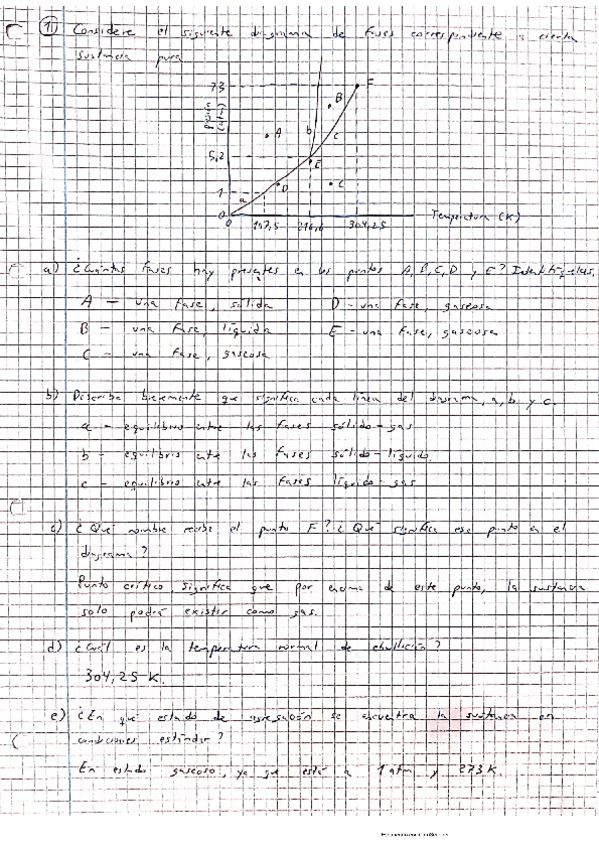 1) Considere el siguiente diagrama de fases correspondiente a cierta
sustancia pura
73
Presión (atm)
5,2
1
0
0 197,5 216,6 304,25
Temperatura (K)
A
B
C
D
E
F
a
b
c
a) ¿Cuántas fases hay presentes en los puntos A, B, C, D y E? Identifíquelas.
A - una fase, sólida D - una fase, gaseosa
B - una fase, líquida E - una fase, gaseosa
C - una fase, gaseosa
b) Describa brevemente que significa cada línea del diagrama, a, b y c.
a - equilibrio entre las fases sólido-gas
b - equilibrio entre las fases sólido-líquido.
c - equilibrio entre las fases líquido-gas
c) ¿Qué nombre recibe el punto F? ¿Qué significa ese punto en el
diagrama?
Punto crítico, significa que por encima de este punto, la sustancia
solo podrá existir como gas.
d) ¿Cuál es la temperatura normal de ebullición?
304,25 K.
e) ¿En qué estado de agregación se encuentra la sustancia en
condiciones estándar?
En estado gaseoso, ya que está a 1 atm y 273 K.